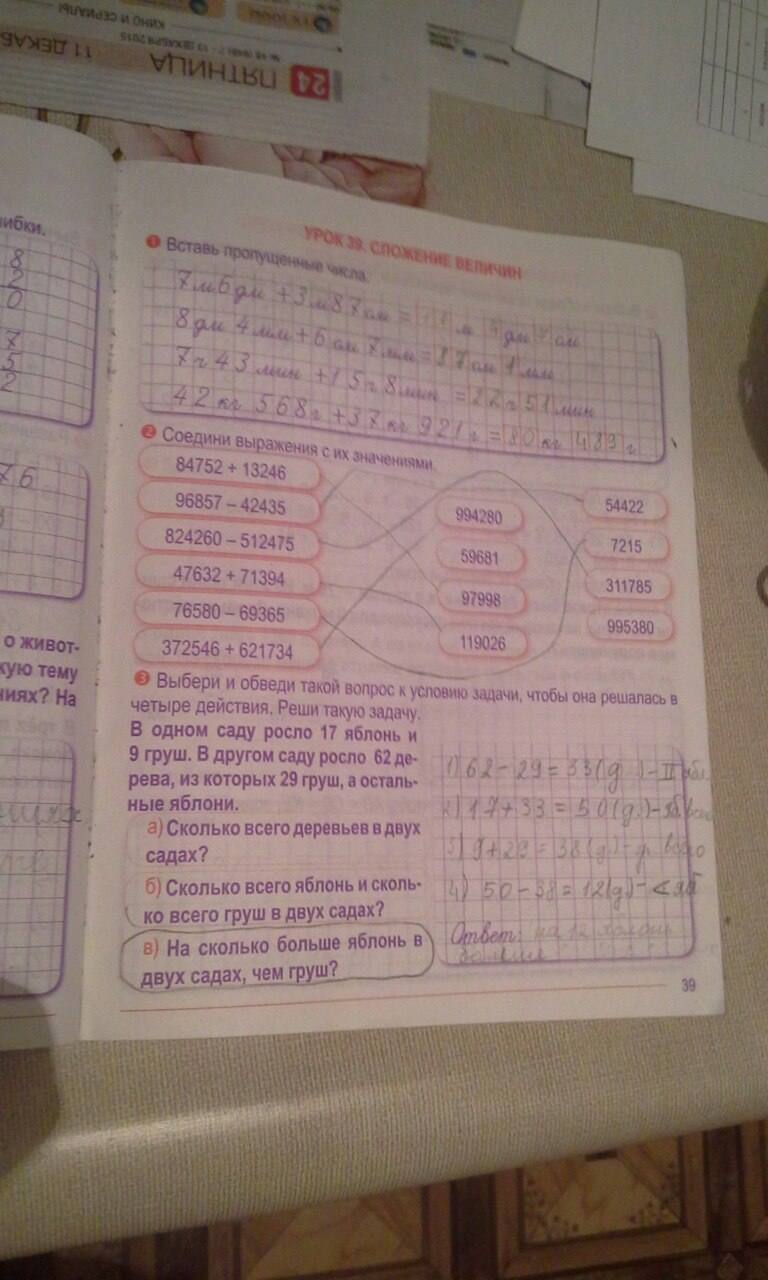 КИНО И СЕРИАЛЫ
№ 48 (948) 7 – 13 ДЕКАБРЯ 2015
24 ПЯТНИЦА 11 ДЕКАБ
ибки.
8
2
0
7
5
2
76
о живот-
кую тему
ниях? На
УРОК 39. СЛОЖЕНИЕ ВЕЛИЧИН
1 Вставь пропущенные числа.
7м 6дм + 3м 87см = 11 м дм см
8дм 4мм + 6 см 7мм = 87см 1мм
7ч 43 мин + 15ч 8мин = 22ч 51мин
42 кг 568г + 37кг 921г = 80 кг 489 г
2 Соедини выражения с их значениями.
84752 + 13246
96857 – 42435
824260 – 512475
47632 + 71394
76580 – 69365
372546 + 621734
994280
59681
97998
119026
54422
7215
311785
995380
3 Выбери и обведи такой вопрос к условию задачи, чтобы она решалась в
четыре действия. Реши такую задачу.
В одном саду росло 17 яблонь и
9 груш. В другом саду росло 62 де-
рева, из которых 29 груш, а осталь-
ные яблони.
а) Сколько всего деревьев в двух
садах?
б) Сколько всего яблонь и сколь-
ко всего груш в двух садах?
в) На сколько больше яблонь в
двух садах, чем груш?
1) 62 – 29 = 33(д.) – II ябл
2) 17 + 33 = 50(д.) – яб
3) 9 + 29 = 38(д) – гр.
4) 50 – 38 = 12(д) – < яб
Ответ: на 12
больше
39